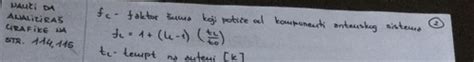 NAUČI DA
ANALIZIRAŠ
GRAFIKE NA
STR. 114, 115
fc - faktor šuma koji potiče od komponenti antenskog sistema
2
fc = 1 + (L-1) (tc/t0)
tc - temp na anteni [K]